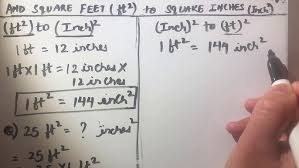 AND SQUARE FEET (ft²) to SQUARE INCHES (Inch)²
(ft²) to (Inch)²
1 ft = 12 inches
1ft x 1 ft = 12 inches x
12 inches
1 ft² = 144 inch²
Q) 25 ft² = ? inches²
= 25 ft²
(Inch)² to (ft)²
1 ft² = 144 inch²